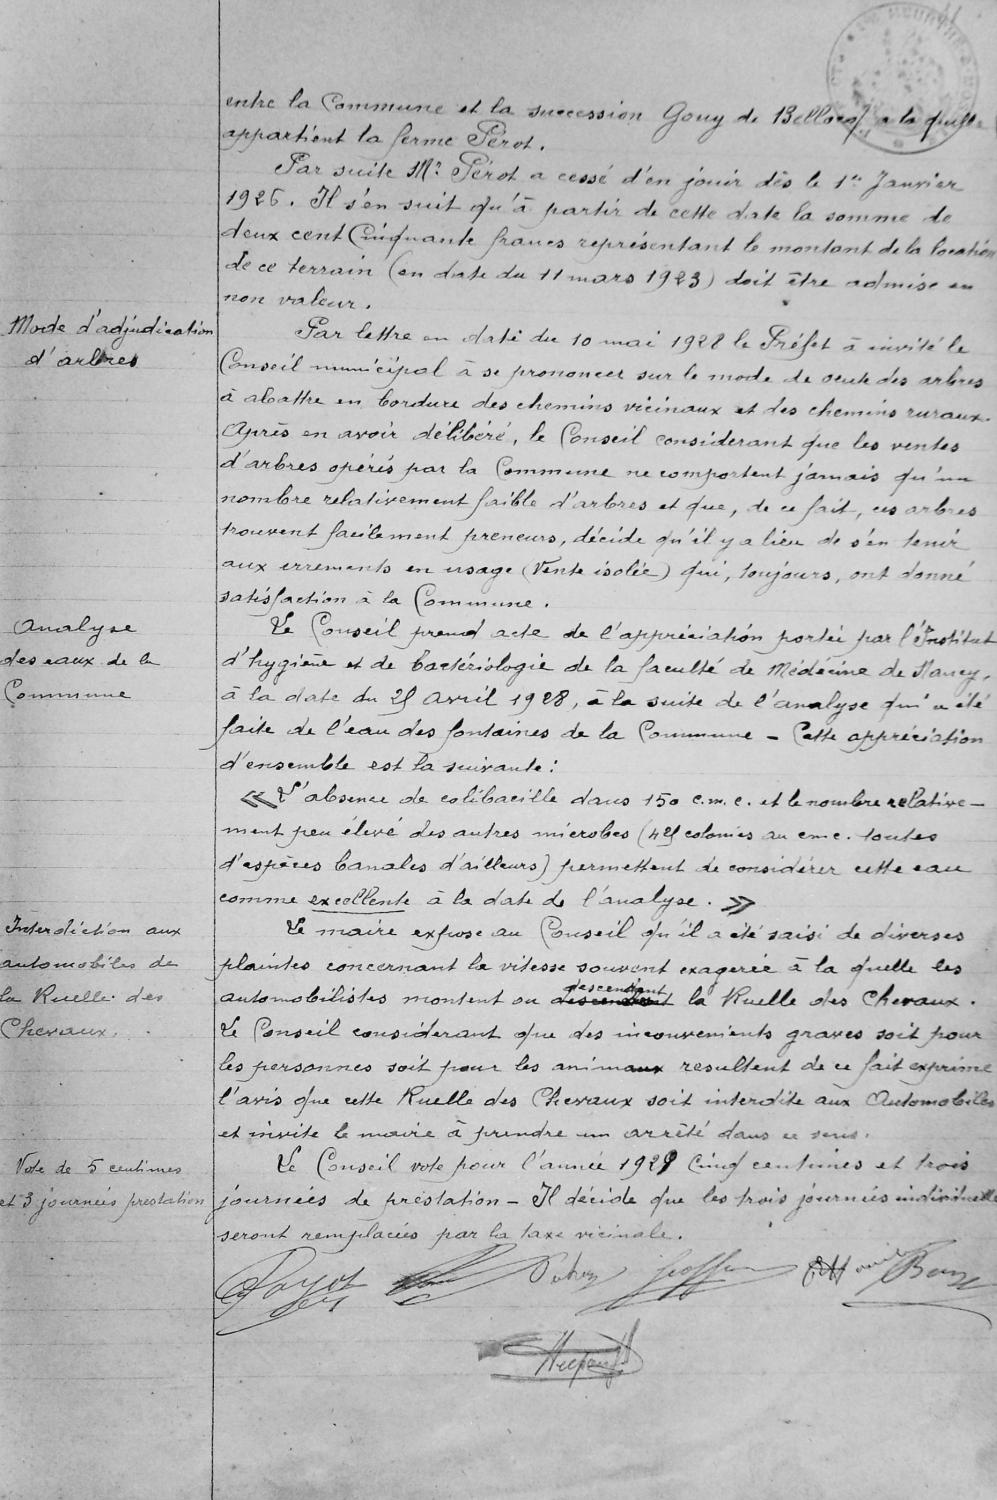 entre la Commune et la succession Gouy de Bellocq, a la quelle
appartient la ferme Pérot.
Par suite Mr Pérot a cessé d'en jouir dès le 1er Janvier
1926. Il s'en suit qu'à partir de cette date la somme de
deux cent Cinquante francs représentant le montant de la location
de ce terrain (en date du 11 mars 1923) doit être admise en
non valeur.
Mode d'adjudication
d'arbres
Par lettre en date du 10 mai 1928 le Préfet à invité le
Conseil municipal à se prononcer sur le mode de vente des arbres
à abattre en bordure des chemins vicinaux et des chemins ruraux.
Après en avoir délibéré, le Conseil considerant que les ventes
d'arbres opérés par la Commune ne comportent jamais qu'un
nombre relativement faible d'arbres et que, de ce fait, ces arbres
trouvent facilement preneurs, décide qu'il y a lieu de s'en tenir
aux errements en usage (Vente isolée) qui, toujours, ont donné
satisfaction à la Commune.
Analyse
des eaux de la
Commune
Le Conseil prend acte de l'appréciation portée par l'Institut
d'hygiène et de bactériologie de la faculté de Médécine de Nancy,
à la date du 25 Avril 1928, à la suite de l'analyse qui a été
faite de l'eau des fontaines de la Commune – Cette appréciation
d'ensemble est la suivante :
« L'absence de colibacille dans 150 c.m.c. et le nombre relative-
ment peu élevé des autres microbes (45 colonies au cmc. toutes
d'espèces banales d'ailleurs) permettent de considérer cette eau
comme excellente à la date de l'analyse. »
Interdiction aux
automobiles de
la Ruelle des
Chevaux.
Le maire expose au Conseil qu'il a été saisi de diverses
plaintes concernant la vitesse souvent exagerée à la quelle les
automobilistes montent ou descendent la Ruelle des Chevaux.
Le Conseil considerant que des inconvenients graves soit pour
les personnes soit pour les animaux resultent de ce fait exprime
l'avis que cette Ruelle des Chevaux soit interdite aux Automobiles
et invite le maire à prendre un arrêté dans ce sens.
Vote de 5 centimes
et 3 journées prestation
Le Conseil vote pour l'année 1929 Cinq centimes et trois
journées de préstation – Il décide que les trois journées individuelle
seront remplacées par la taxe vicinale.